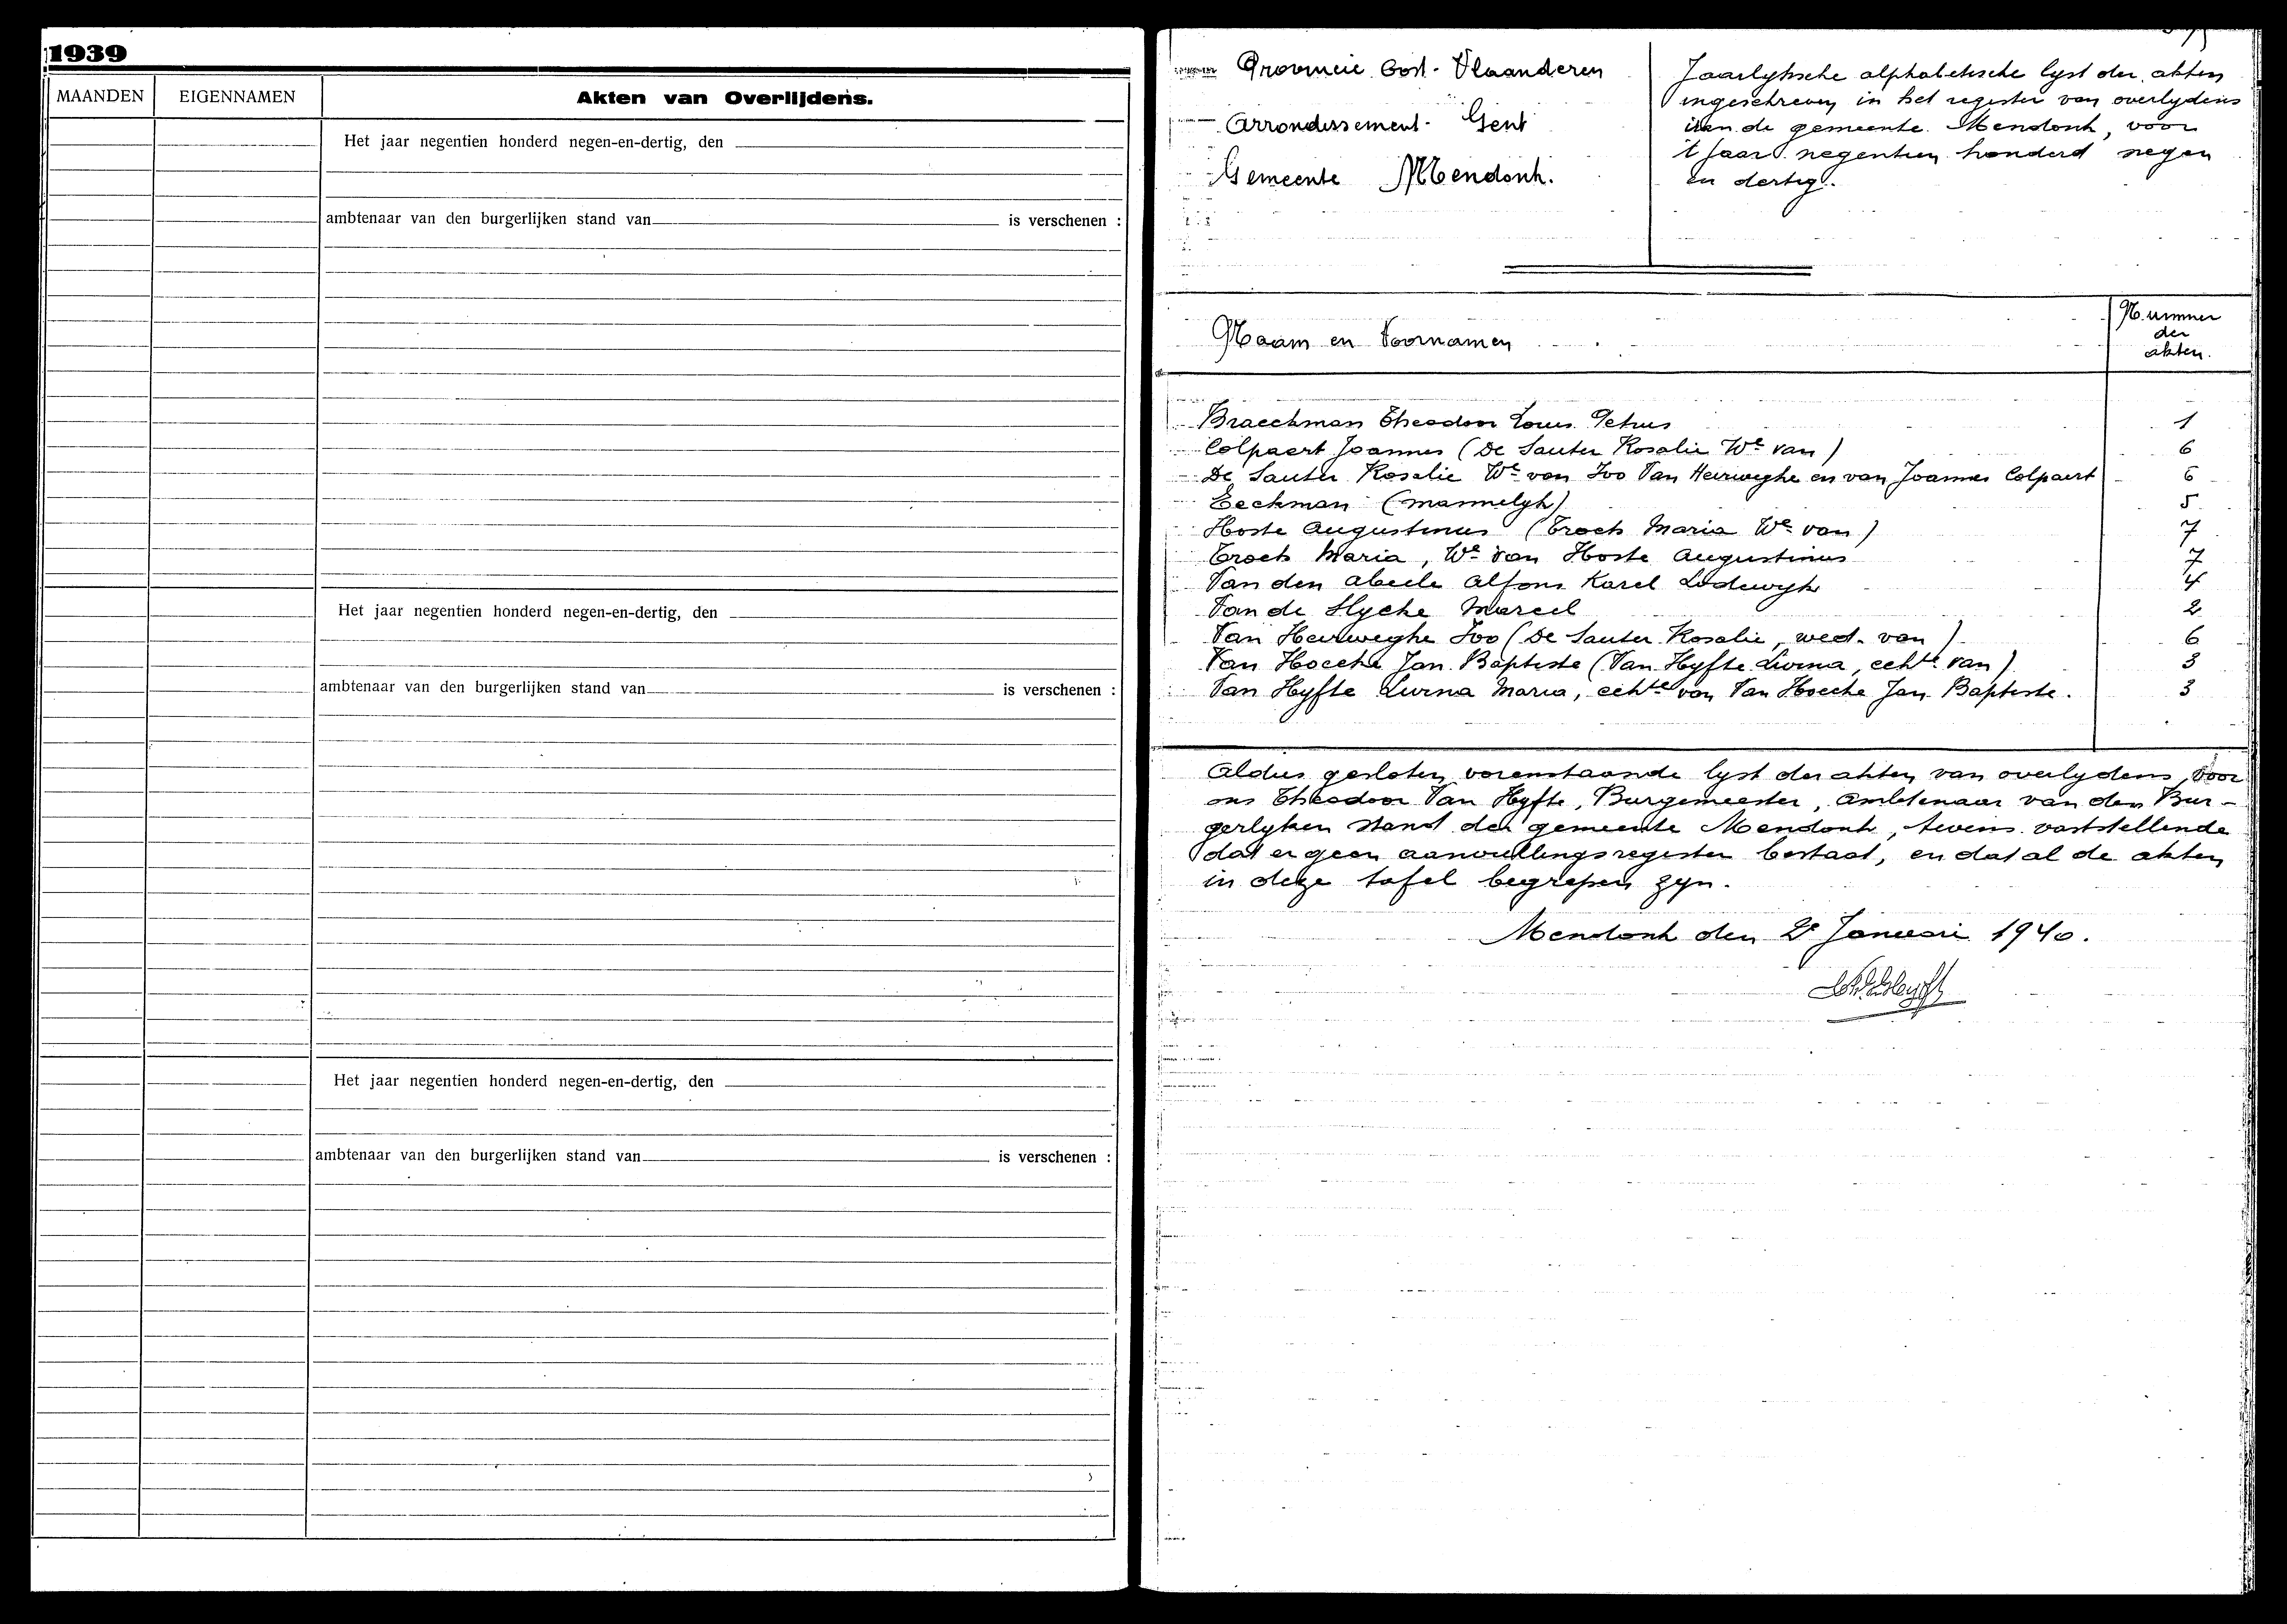 1939
MAANDEN EIGENNAMEN Akten van Overlijdens.
Het jaar negentien honderd negen-en-dertig, den
ambtenaar van den burgerlijken stand van is verschenen :
Het jaar negentien honderd negen-en-dertig, den
ambtenaar van den burgerlijken stand van is verschenen :
Het jaar negentien honderd negen-en-dertig, den
ambtenaar van den burgerlijken stand van is verschenen :
Provincie Oost-Vlaanderen
Arrondissement Gent
Gemeente Mendonk.
Jaarlyksche alphabetische lyst der akten
ingeschreven in het register van overlydens
van de gemeente Mendonk, voor
't jaar negentien honderd negen
en dertig.
Naam en Voornamen
Nummer
der
akten.
Braeckman Theodoor Louis Petrus 1
Colpaert Joannes (De Sauter Rosalie We van) 6
De Sauter Rosalie We van Ivo Van Heirweghe en van Joannes Colpaert 6
Eeckman (mannelyk) 5
Hoste Augustinus (Troch Maria We van) 7
Troch Maria, We van Hoste Augustinus 7
Van den Abeele Alfons Karel Lodewyk 4
Van de Slycke Marcel 2
Van Heirweghe Ivo (De Sauter Rosalie, wed. van) 6
Van Hoecke Jan Baptiste (Van Hyfte Livina, echte van) 3
Van Hyfte Livina Maria, echte van Van Hoecke Jan Baptiste. 3
Aldus gesloten vorenstaande lyst der akten van overlydens, door
ons Theodoor Van Hyfte, Burgemeester, Ambtenaar van den Bur-
gerlyken stand der gemeente Mendonk, tevens vaststellende
dat er geen aanvullingsregister bestaat, en dat al de akten
in deze tafel begrepen zyn.
Mendonk den 2e Januari 1940.